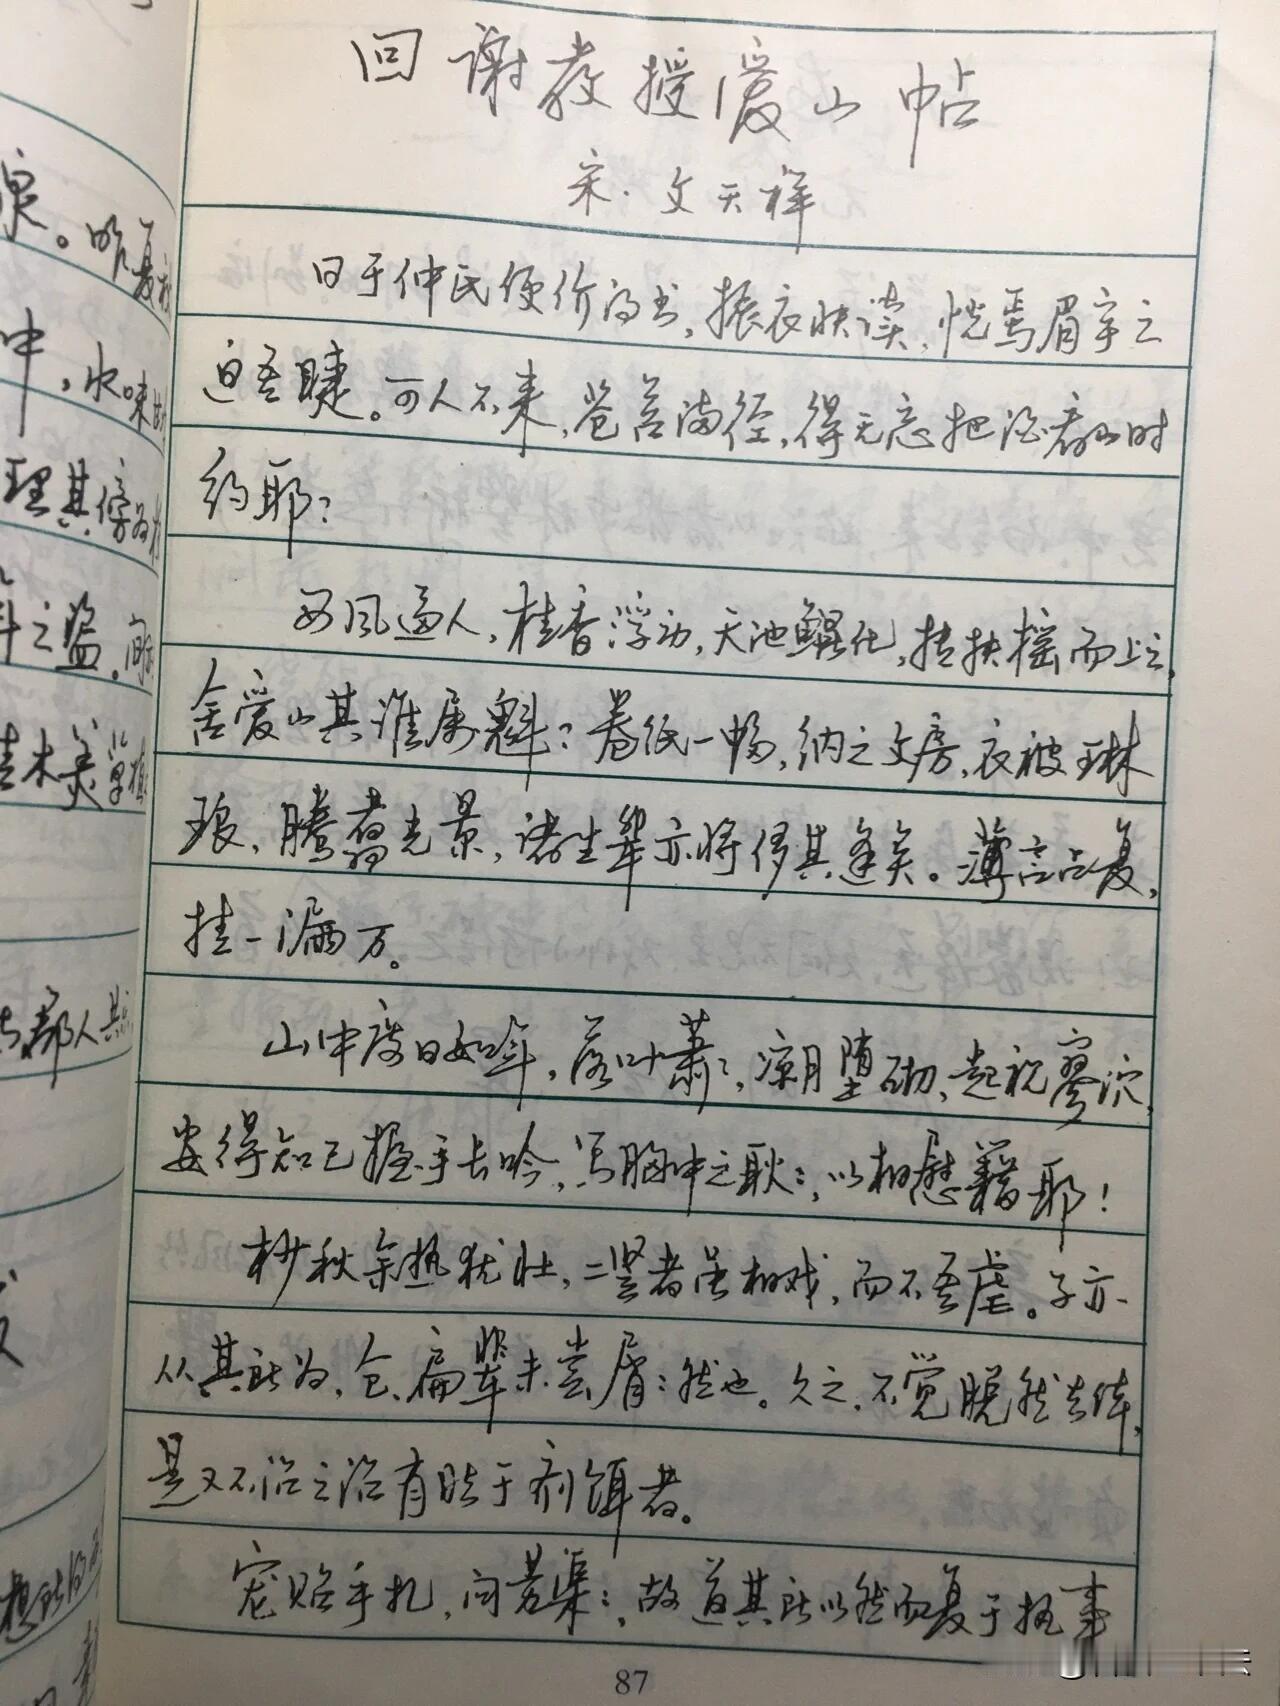 回谢教授爱山帖
宋·文天祥
日于仲氏便价得书,振衣快读,恍焉眉宇之
迫吾睫。可人不来,苍苔满径,得无忘把酒看山时
约耶?
西风逼人,桂香浮动,天池鲲化,抟扶摇而上之,
舍爱山其谁属魁?卷纸一幅,纳之文房,衣被琳
琅,腾翥光景,诸生辈亦将侈其逢矣。薄言占复,
挂一漏万。
山中度日如年,落叶萧:,凉月堕砌,起视寥泬,
安得知己握手长吟,写胸中之耿:,以相慰藉耶!
杪秋余热犹壮,二竖者虽相戏,而不吾虐。予亦
从其所为,仓、扁辈未尝屑:然也。久之,不觉脱然去体,
是又不治之治有贤于剂饵者。
宠贻手扎,问劳渠:,故道其所以然而复于执事
87
泉。昨夏
中,水味
理其傍为
斗之盗。
佳木美草植
部人其